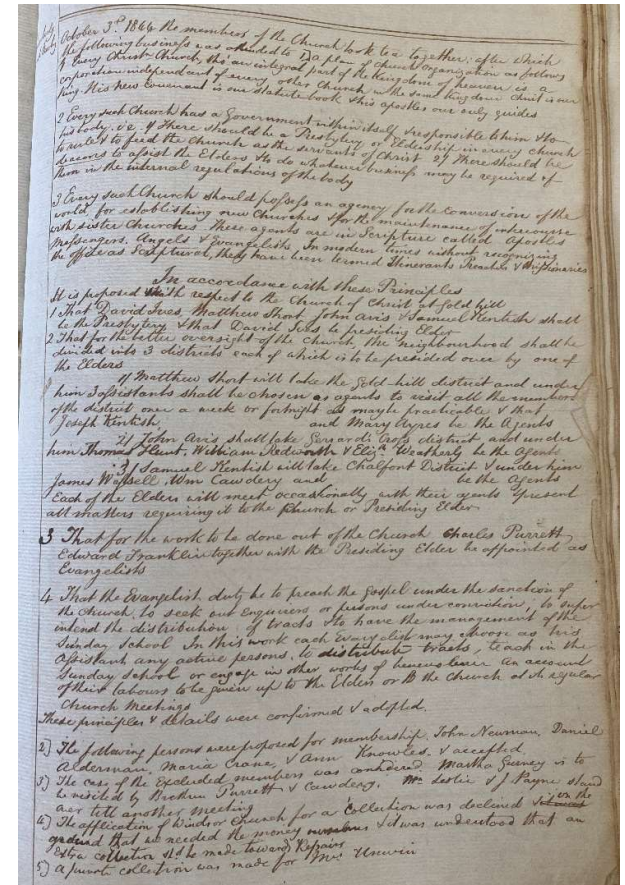 October 3rd 1844 the members of the Church took tea together; after which
the following business was attended to 1) a plan of Church organization as follows
1 Every Christ Church, this an integral part of the Kingdom of heaven is a
corporation independent of every other Church in the same Kingdom Christ is our
King. His new Covenant is our statute book & his apostles our only guides
2 Every such Church has a Government within itself responsible to him & to
his body. viz 1/ There should be a Presbytery or Eldership in every church
to rule & to feed the Church as the servants of Christ 2/ There should be
deacons to assist the Elders & to do whatever business may be required of
them in the internal regulations of the body
3 Every such Church should possess an agency for the conversion of the
world, for establishing new Churches & for the maintenance of intercourse
with sister Churches. These agents are in Scripture called Apostles
Messengers, Angels & Evangelists. In modern times without recognizing
the office as Scriptural, they have been termed Itinerants Preachers & Missionaries
In accordance with these Principles
It is proposed with respect to the Church of Christ at Gold hill
1 That David Ives, Matthew Short John Aris & Samuel Kentish shall
be the Presbytery & that David Ives be presiding Elder
2 That for the better oversight of the Church, the neighbourhood shall be
divided into 3 districts each of which is to be presided over by one of
the Elders
1/ Matthew Short will take the Gold-hill district and under
him 3 assistants shall be chosen as agents to visit all the members
of the district once a week or fortnight as may be practicable & that
Joseph Kentish and Mary Ayres be the Agents
2/ John Aris shall take Gerrards Cross district and under
him Thomas Hunt, William Jedworth & Eliza Weatherly be the Agents
3/ Samuel Kentish will take Chalfont District & under him
James Wassell, Wm Cawdery and be the Agents
Each of the Elders will meet occasionally with their agents & present
all matters requiring it to the Church or Presiding Elder
3 That for the work to be done out of the Church Charles Purrett
Edward Franklin together with the Presiding Elder be appointed as
Evangelists
4 That the Evangelist duty be to preach the Gospel under the sanction of
the Church, to seek out Enquirers or persons under conviction, to super
intend the distribution of tracts & to have the management of the
Sunday School In this work each Evangelist may choose as his
Assistant any active persons, to distribute tracts, teach in the
Sunday School or engage in other works of benevolence an account
of their labours to be given up to the Elders or to the Church at its regular
Church Meetings
These principles & details were confirmed & adopted.
2) The following persons were proposed for membership. John Newman, Daniel
Alderman, Maria Crane, & Ann Knowles. & accepted
3) The case of the Excluded members was considered Martha Gurney is to
be visited by Brethren Purrett & Cawdery. Mr Leslie & J Payne stand
over till another meeting
4) The application of Windsor Church for a Collection was declined on the
ground that we needed the money & it was understood that an
Extra collection shd be made toward Repairs
5) A private collection was made for Mrs Unwin